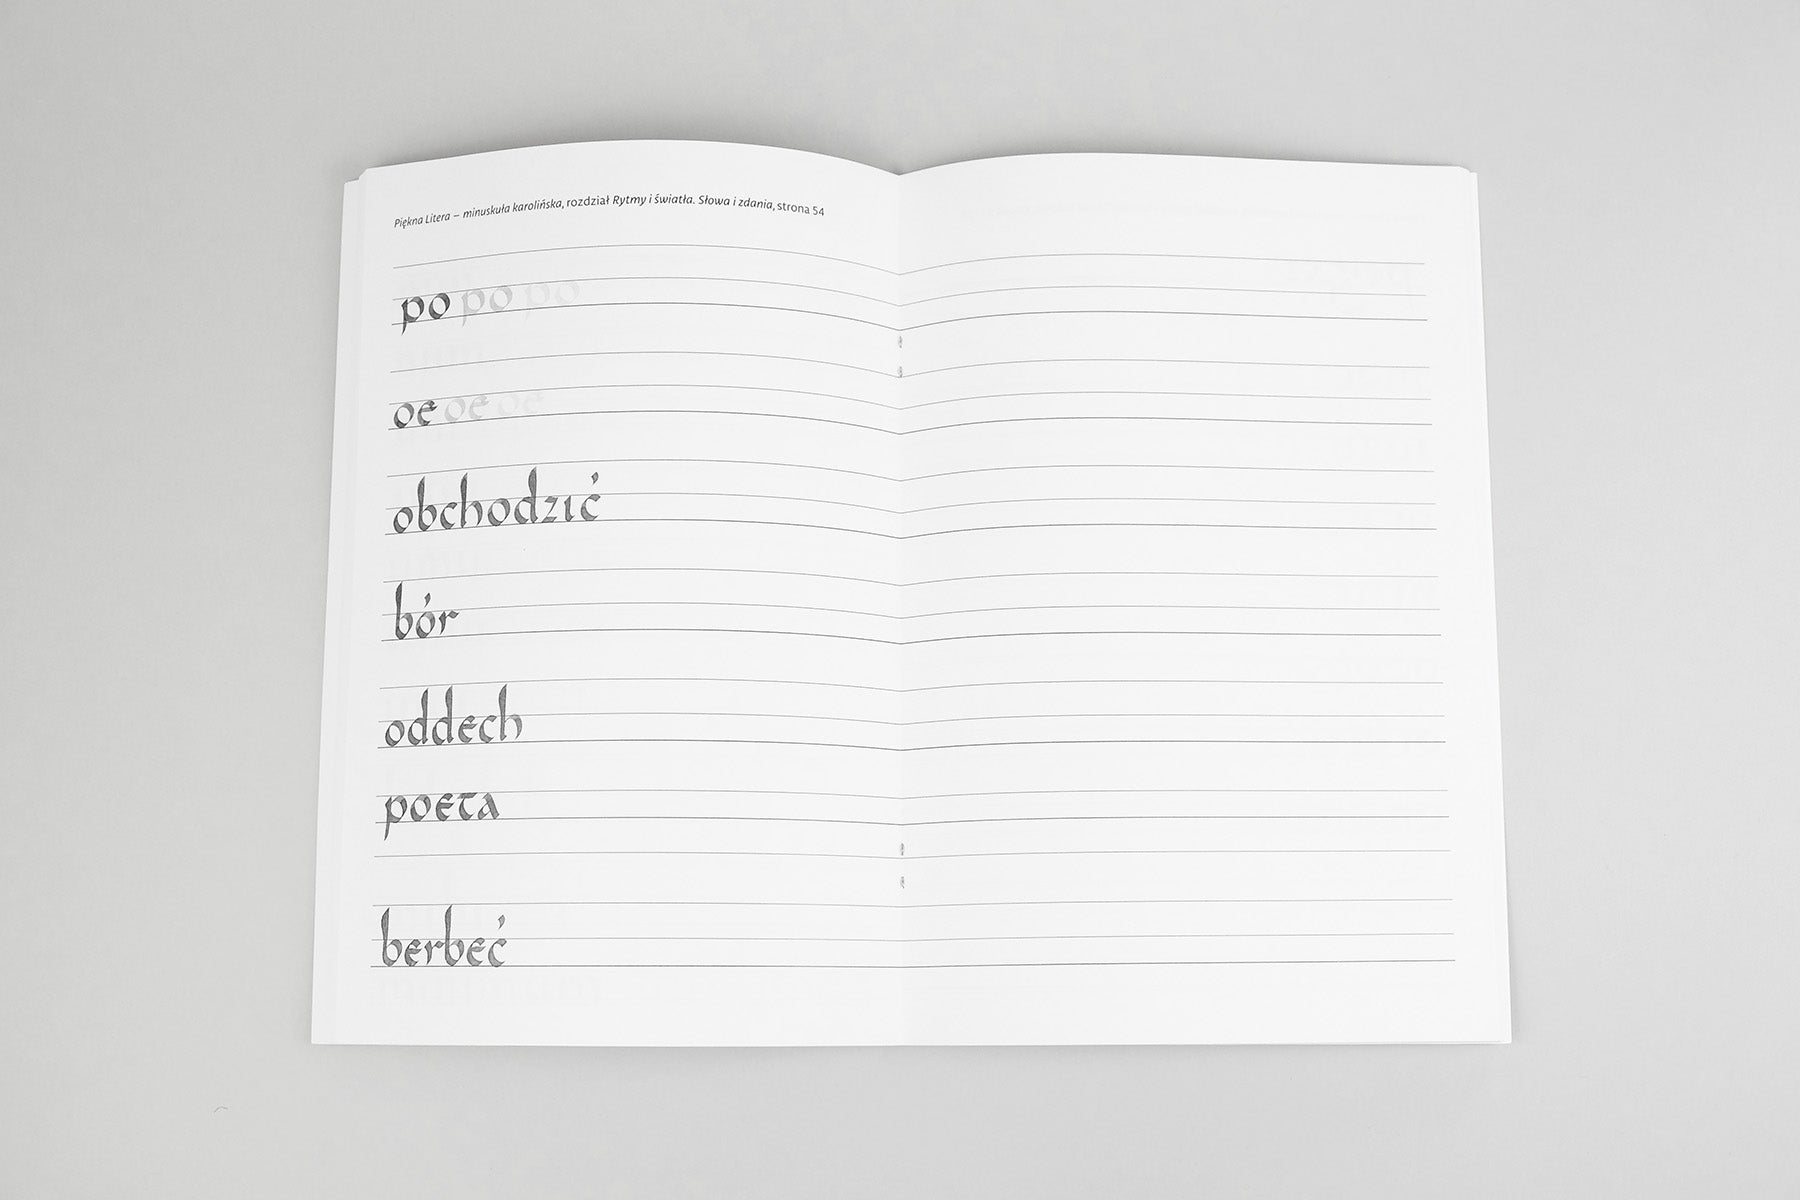 Piękna Litera – minuskuła karolińska, rozdział Rytmy i światła. Słowa i zdania, strona 54
po po po
oe oe oe
obchodzić
bór
oddech
poeta
berbeć